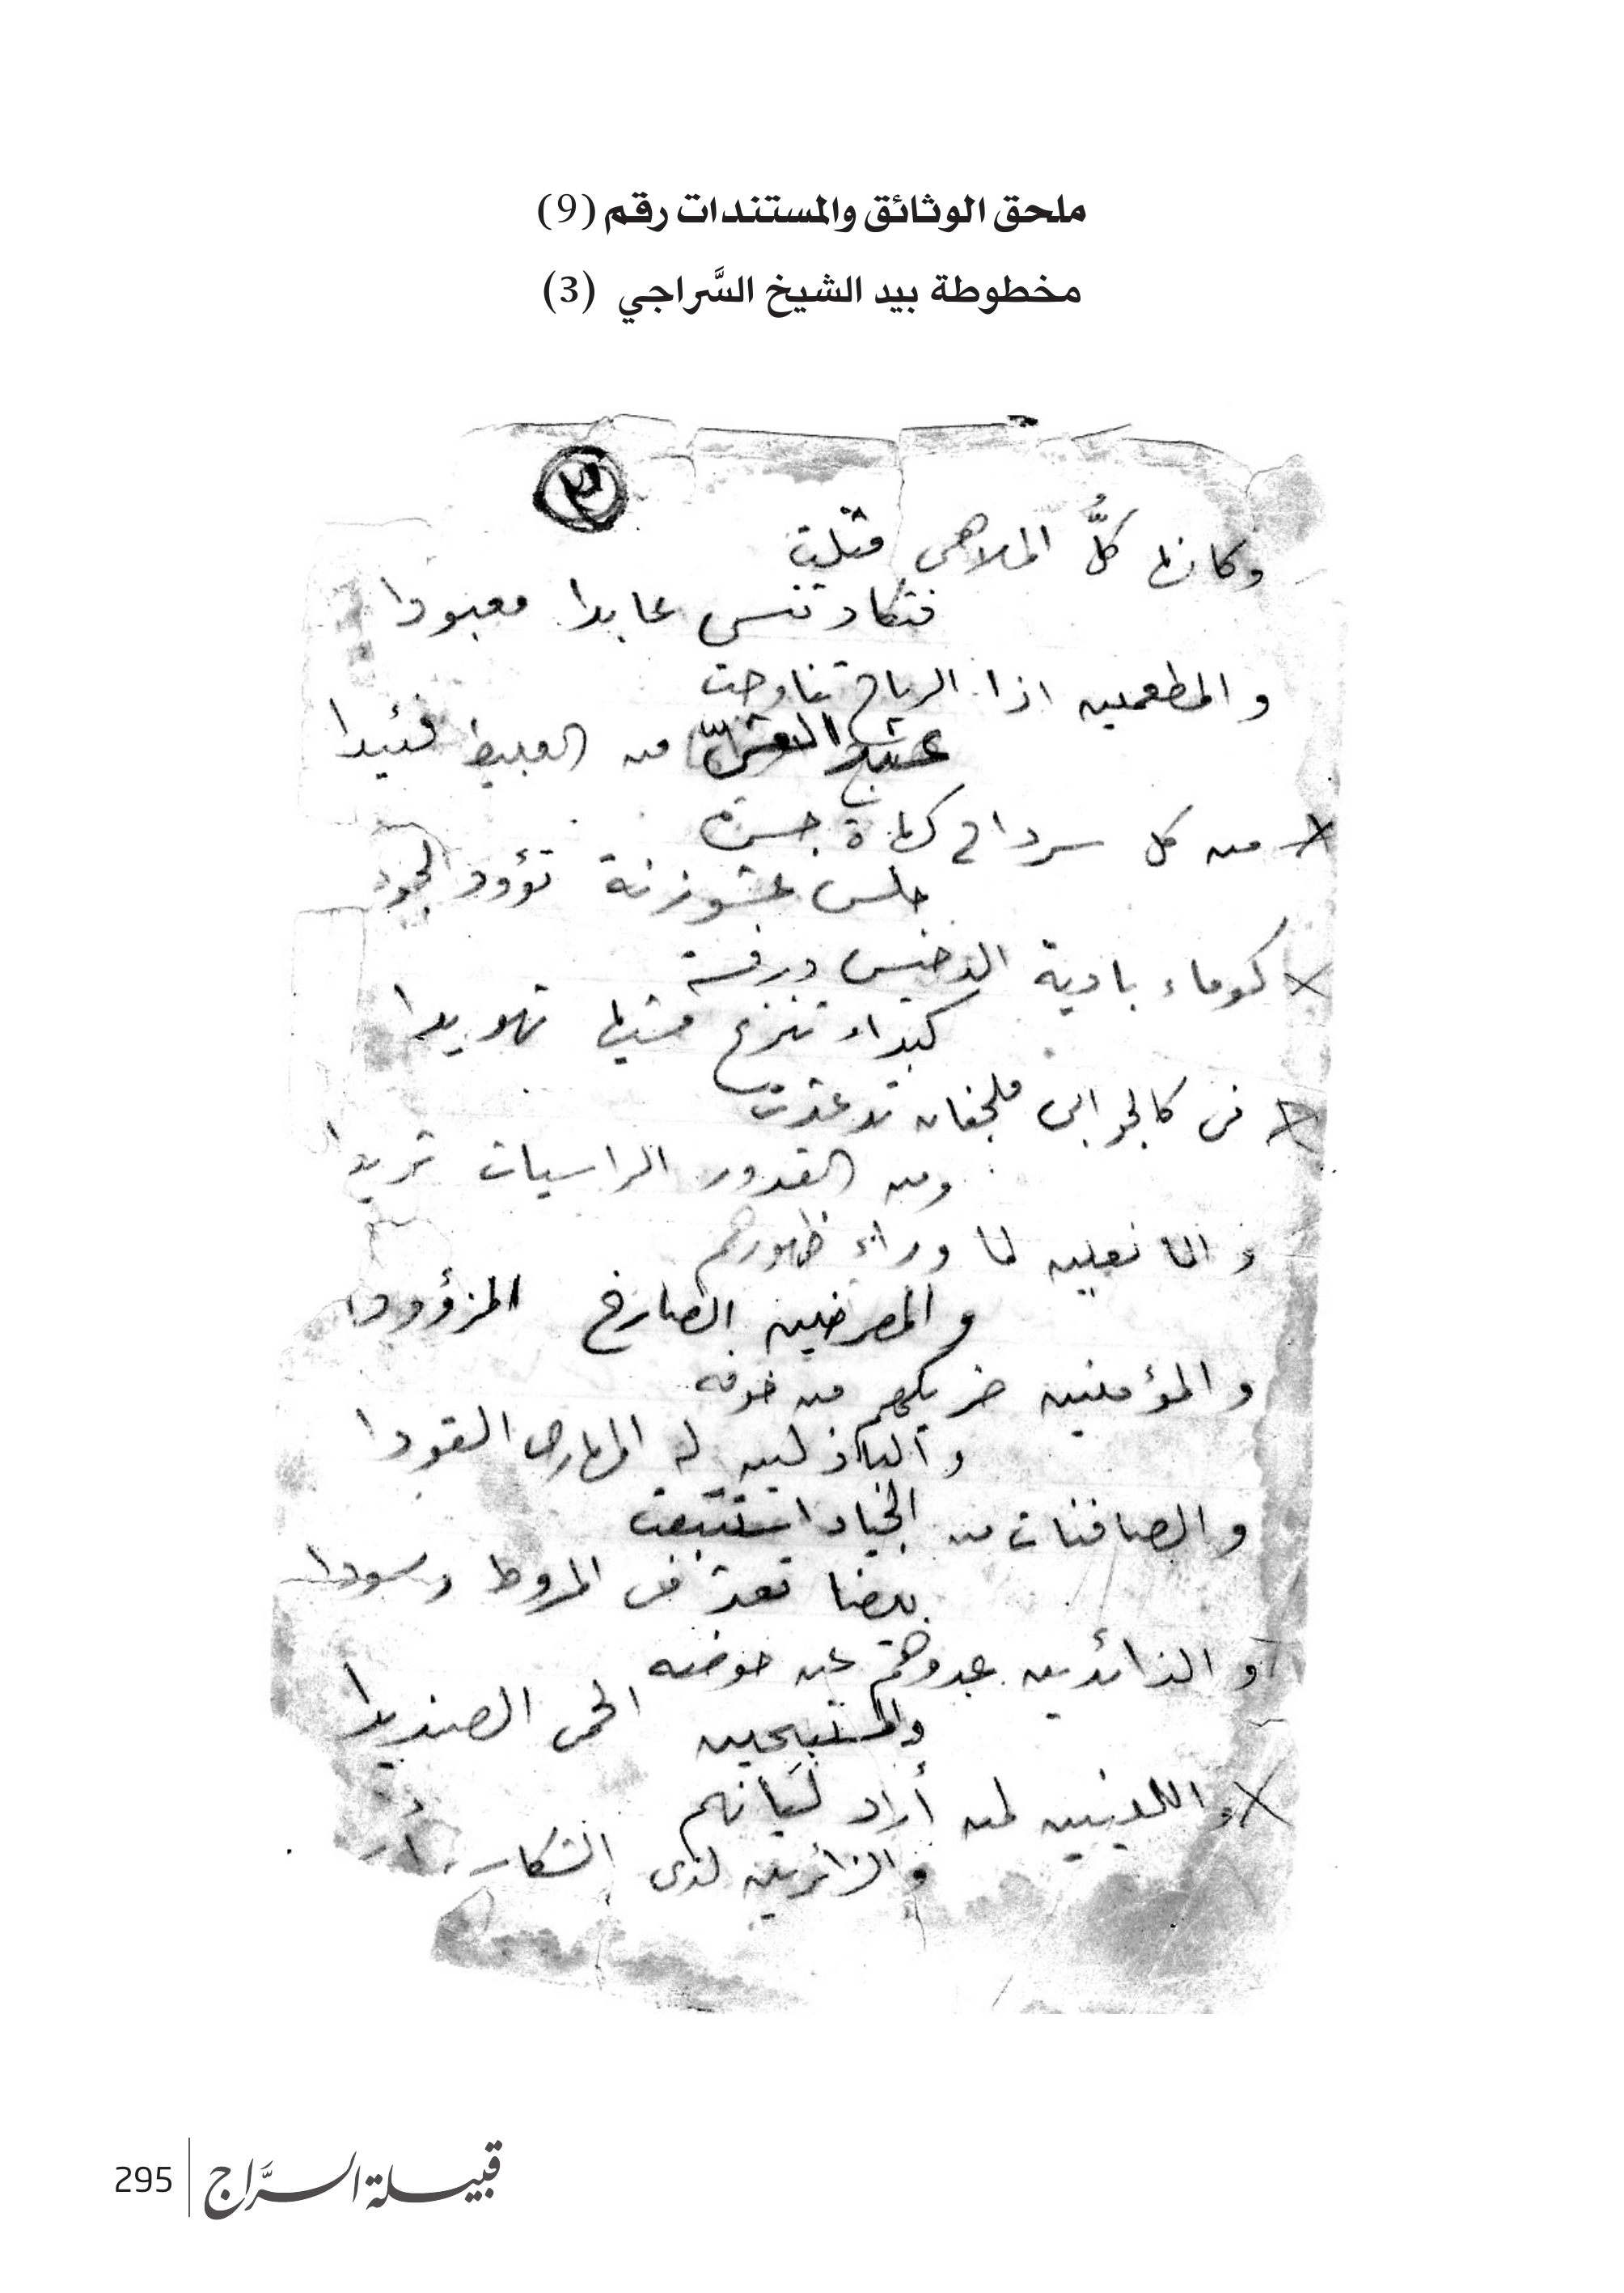 ملحق الوثائق والمستندات رقم (9)
مخطوطة بيد الشيخ السَّراجي (3)
٣
وكانها كلُّ الملاهي قتلت
فتكاد تنسى عابدا معبودا
والمطعمين اذا الرياح تناوحت
من العبيط فئيدا
من كل سرداح كهاة جسرة
جلس عشوزنة تؤود الجود
كوماء بادية الدخيس درفسة
كبداء تنزع مشيها تهويدا
فى كالجوابى ملجفان
ومن القدور الراسيات ثريدا
والمانعين لما وراء ظهورهم
والمصرخين الصارخ المزؤودا
والمؤمنين ضريكهم من خوفه
والباذلين له المهارى القودا
والصافنات من الجياد استتبعت
بيضا تعثر فى المروط وسودا
والذائدين عدوهم عن حوضه
والمستبيحين الحمى الصنديدا
واللدنين لمن أراد لَيَانهم
والزائرين لدى الشكار
قبيلة السرَّاج
295